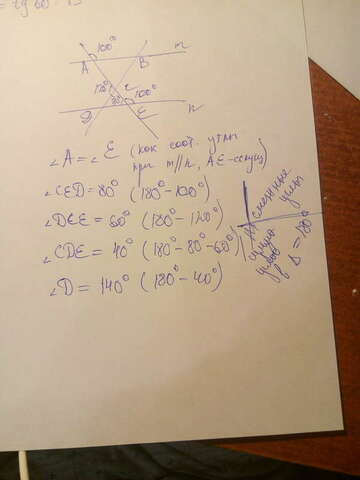 = tg 60°
100°
m
A
B
120°
C
80
100°
D
E
n
∠A = ∠E (как соот. углы
при m||n, AE-секущ)
∠CED = 80° (180° - 100°)
∠DCE = 60° (180° - 120°)
смежные углы
∠CDE = 40° (180° - 80° - 60°)
сумма углов в Δ = 180°
∠D = 140° (180° - 40°)